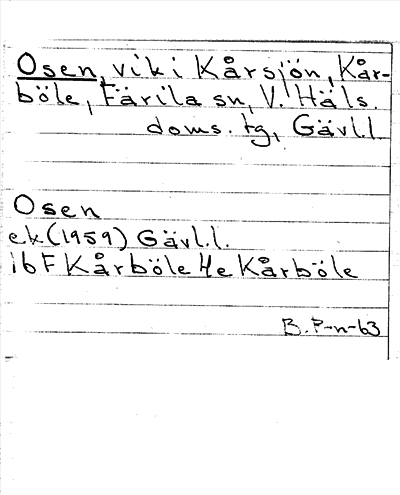 Osen, vik i Kårsjön, Kår-
böle, Färila sn, V. Häls.
doms. tg, Gävl.l
Osen
ek (1959) Gävl.l.
16F Kårböle 4e Kårböle
B. P-n-63